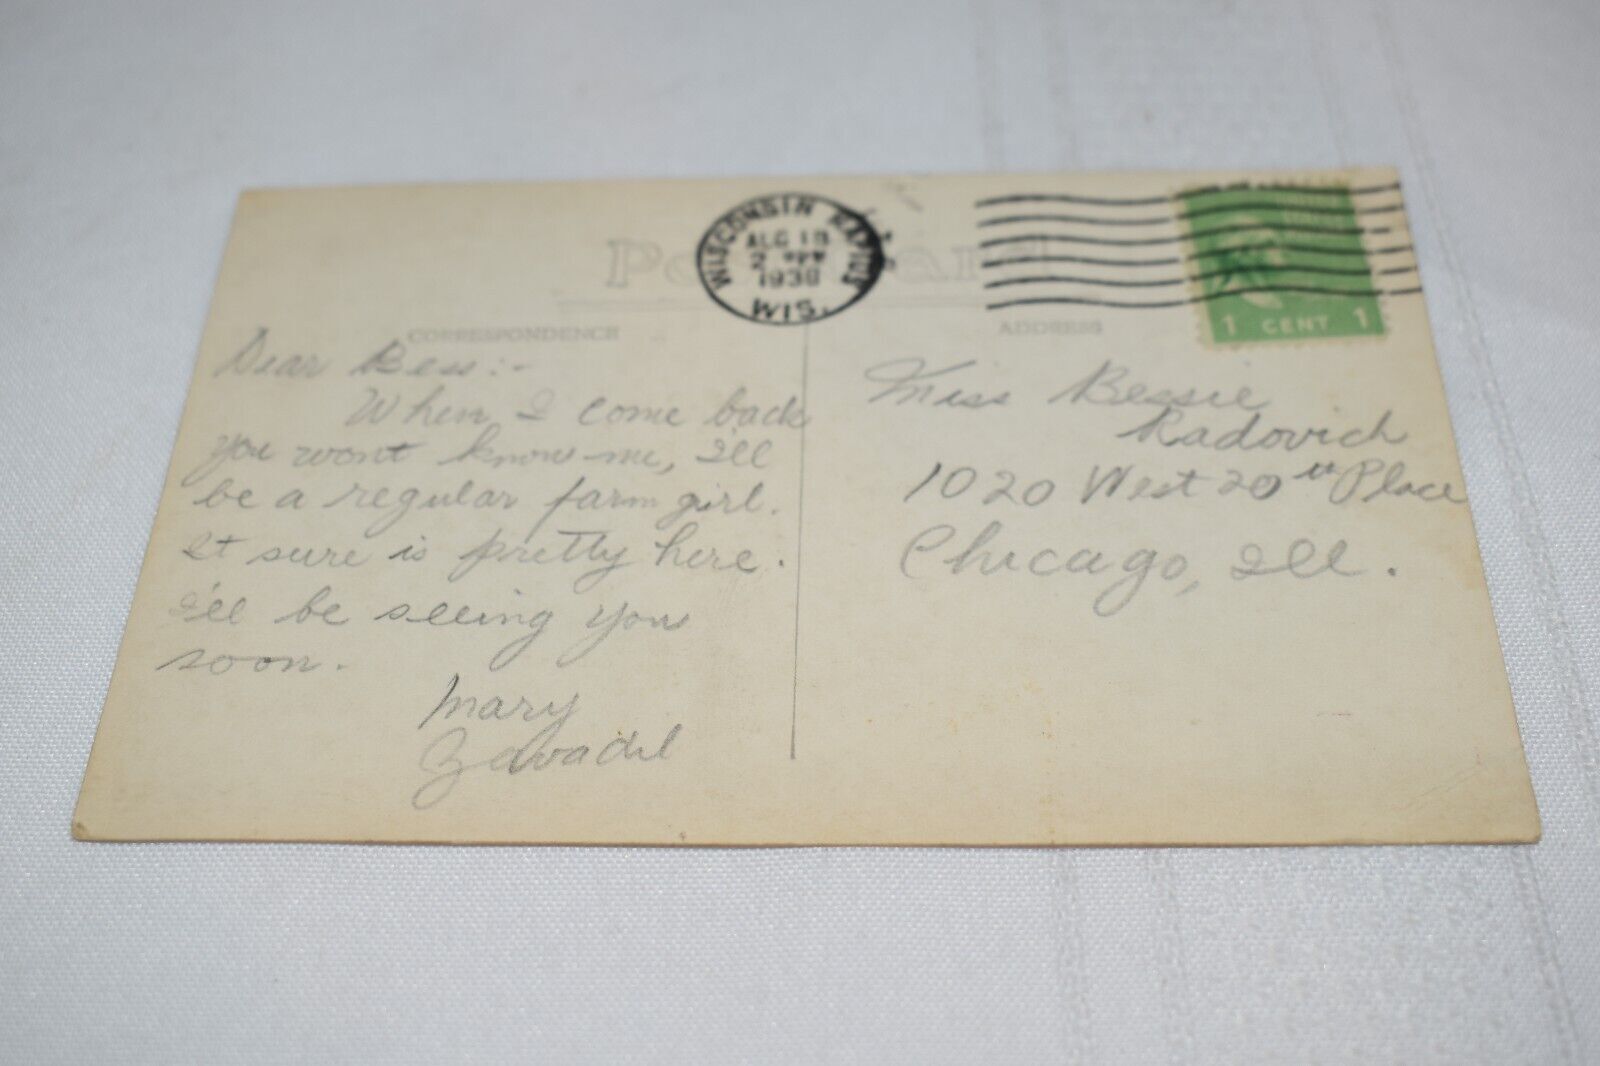 Post Card
WISCONSIN RAPIDS
AUG 19
2 PM
1938
WIS.
1 CENT 1
CORRESPONDENCE
ADDRESS
Dear Bess:-
When I come back
you wont know me, I'll
be a regular farm girl.
It sure is pretty here.
I'll be seeing you
soon.
Mary
Zavadil
Miss Bessie
Radovich
1020 West 20th Place
Chicago, Ill.